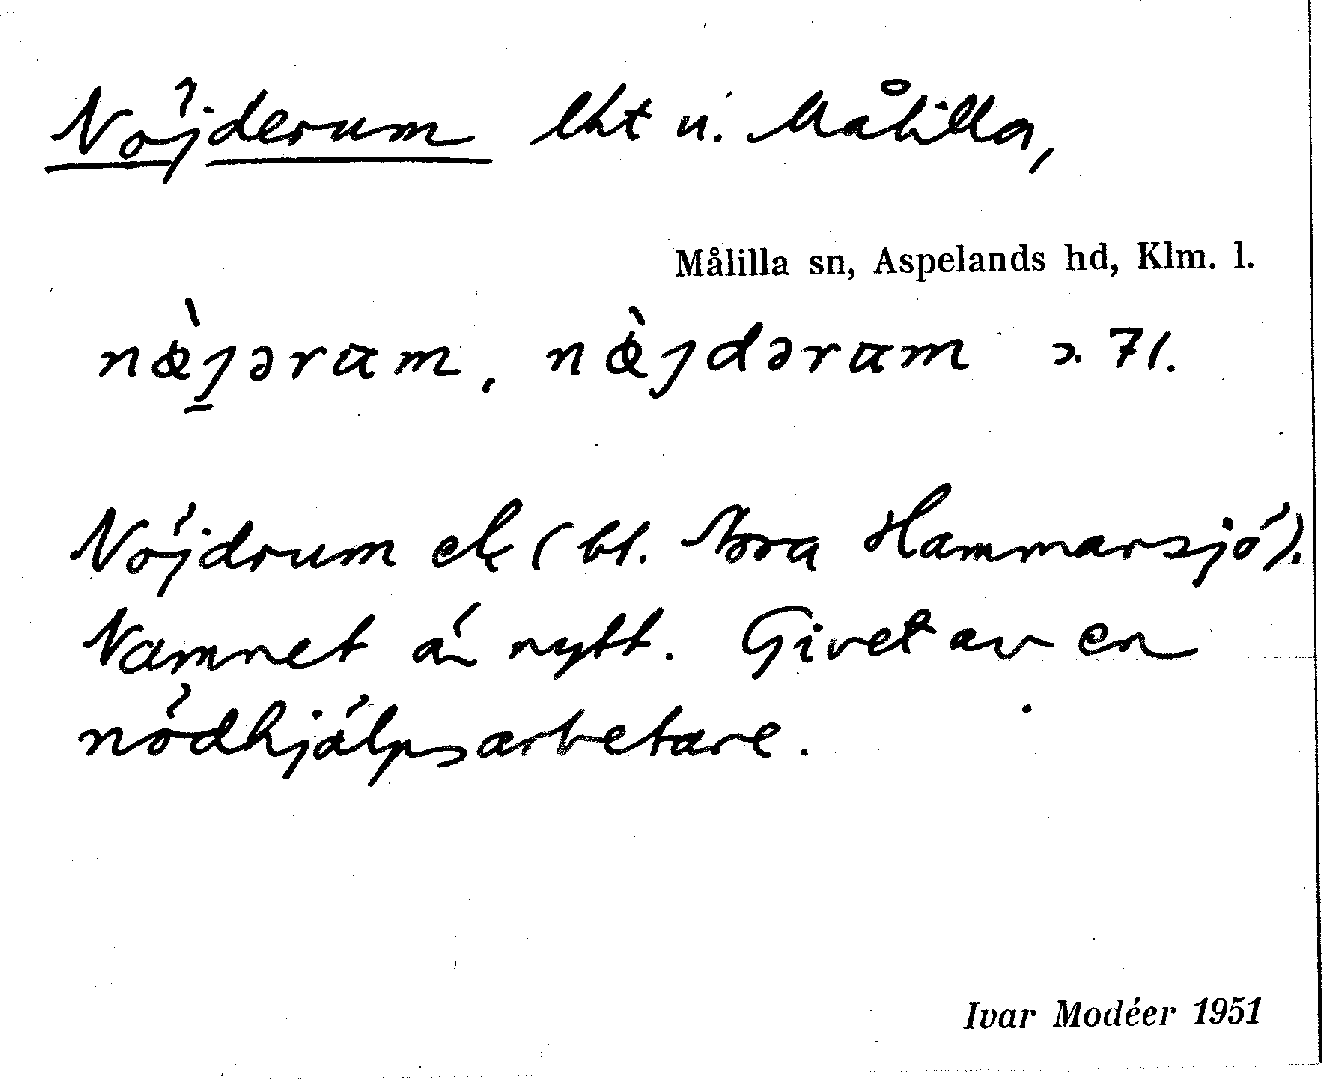 Nöjderum lht u. Målilla,
Målilla sn, Aspelands hd, Klm. l.
nœ̀jərum, nœ̀jdərum 71.
Nöjdrum ek (bl. Norra Hammarsjö).
Namnet är nytt. Givet av en
nödhjälpsarbetare.
Ivar Modéer 1951